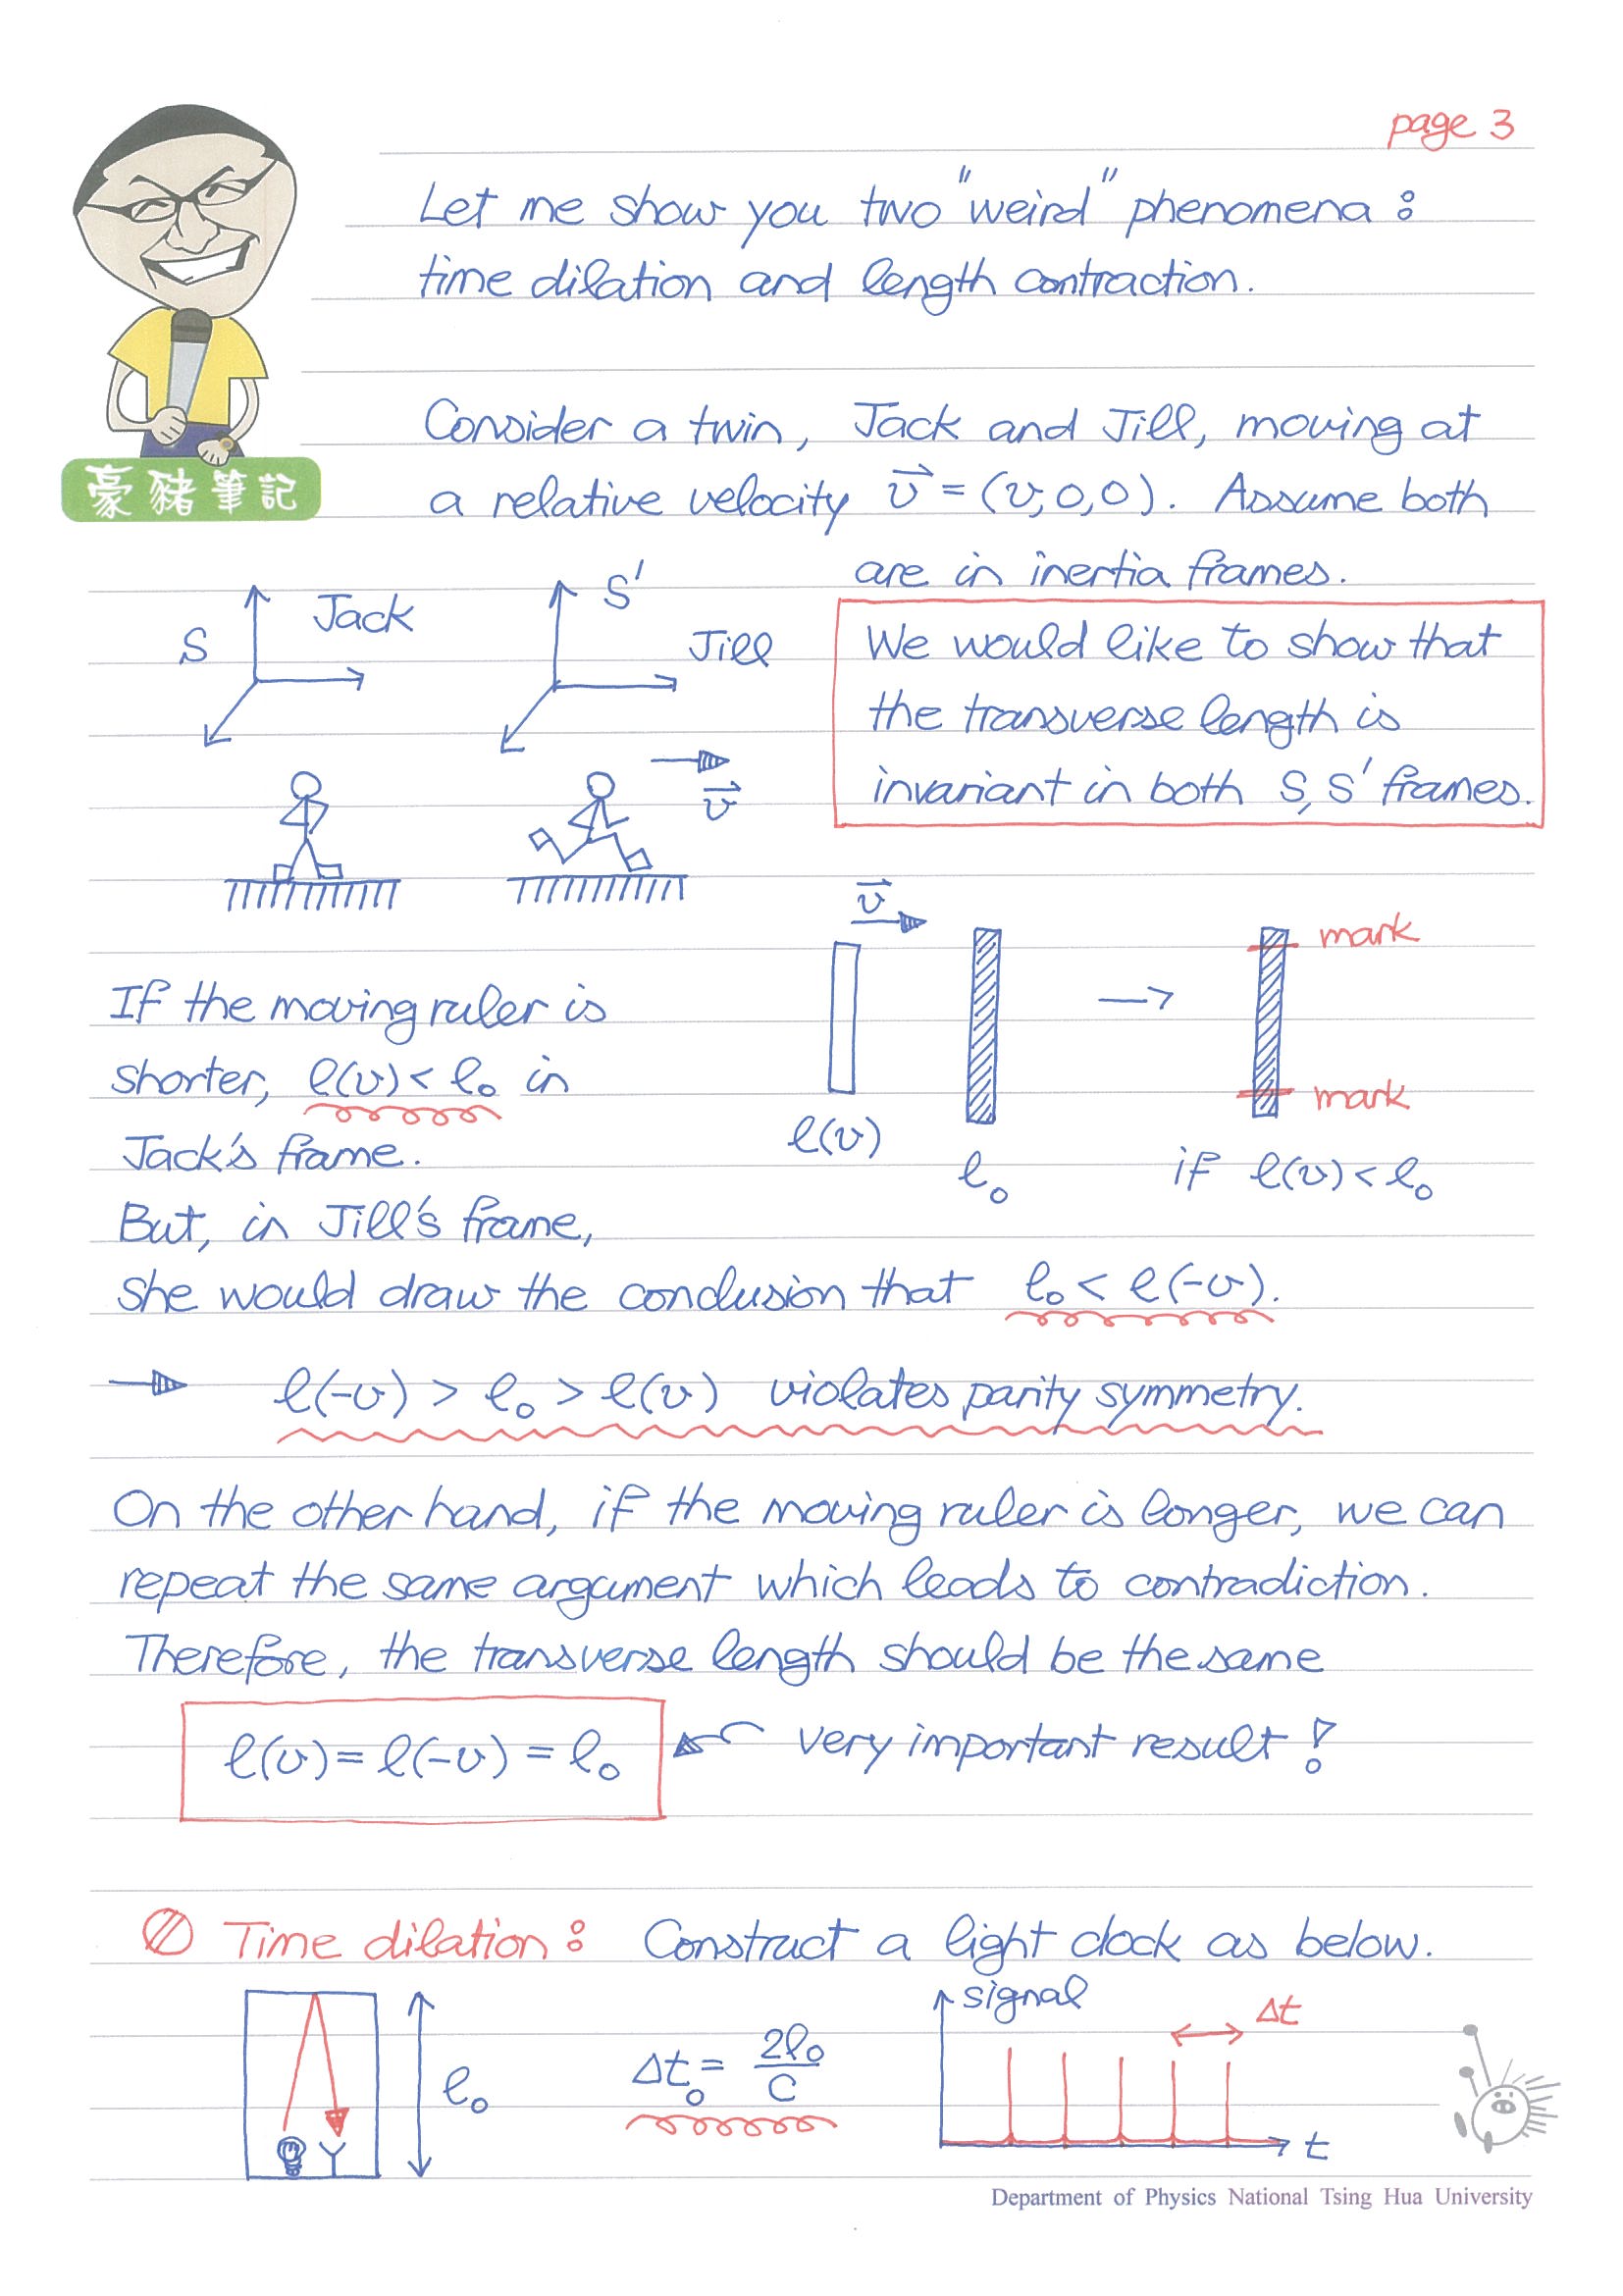 page 3
Let me show you two "weird" phenomena:
time dilation and length contraction.
Consider a twin, Jack and Jill, moving at
豪豬筆記
a relative velocity v⃗ = (v,0,0). Assume both
are in inertia frames.
S
Jack
S'
Jill
v⃗
We would like to show that
the transverse length is
invariant in both S, S' frames.
If the moving ruler is
shorter, ℓ(v) < ℓ₀ in
Jack's frame.
v⃗
ℓ(v)
ℓ₀
→
mark
mark
if ℓ(v) < ℓ₀
But, in Jill's frame,
she would draw the conclusion that ℓ₀ < ℓ(-v).
ℓ(-v) > ℓ₀ > ℓ(v) violates parity symmetry.
On the other hand, if the moving ruler is longer, we can
repeat the same argument which leads to contradiction.
Therefore, the transverse length should be the same
ℓ(v) = ℓ(-v) = ℓ₀ very important result!
Time dilation: Construct a light clock as below.
ℓ₀
Δt₀ = 2ℓ₀/c
signal
Δt
t
Department of Physics National Tsing Hua University